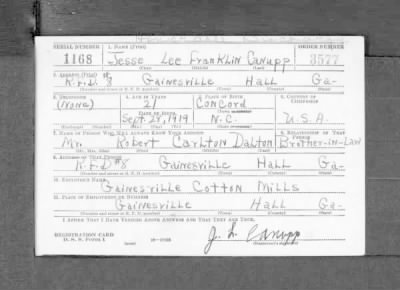 SERIAL NUMBER 1. NAME (Print) ORDER NUMBER
1168 Jesse Lee Franklin Canupp 3577
(First) (Middle) (Last)
2. ADDRESS (Print)
R.F.D. #8 Gainesville Hall Ga-
(Town) (County) (State)
3. TELEPHONE 4. AGE IN YEARS 5. PLACE OF BIRTH 6. COUNTRY OF CITIZENSHIP
(None) 21 Concord
DATE OF BIRTH
Sept. 28, 1919 N.C. U.S.A.
7. NAME OF PERSON WHO WILL ALWAYS KNOW YOUR ADDRESS 8. RELATIONSHIP OF THAT PERSON
Mr. Robert Carlton Dalton Brother-in-Law
(Mr., Mrs., Miss) (First) (Middle) (Last)
9. ADDRESS OF THAT PERSON
R.F.D #8 Gainesville Hall Ga-
(Town) (County) (State)
10. EMPLOYER'S NAME
Gainesville Cotton Mills
11. PLACE OF EMPLOYMENT OR BUSINESS
Gainesville Hall Ga-
(Town) (County) (State)
I AFFIRM THAT I HAVE VERIFIED ABOVE ANSWERS AND THAT THEY ARE TRUE.
REGISTRATION CARD J. L. Canupp
D. S. S. FORM 1 (Registrant's signature)